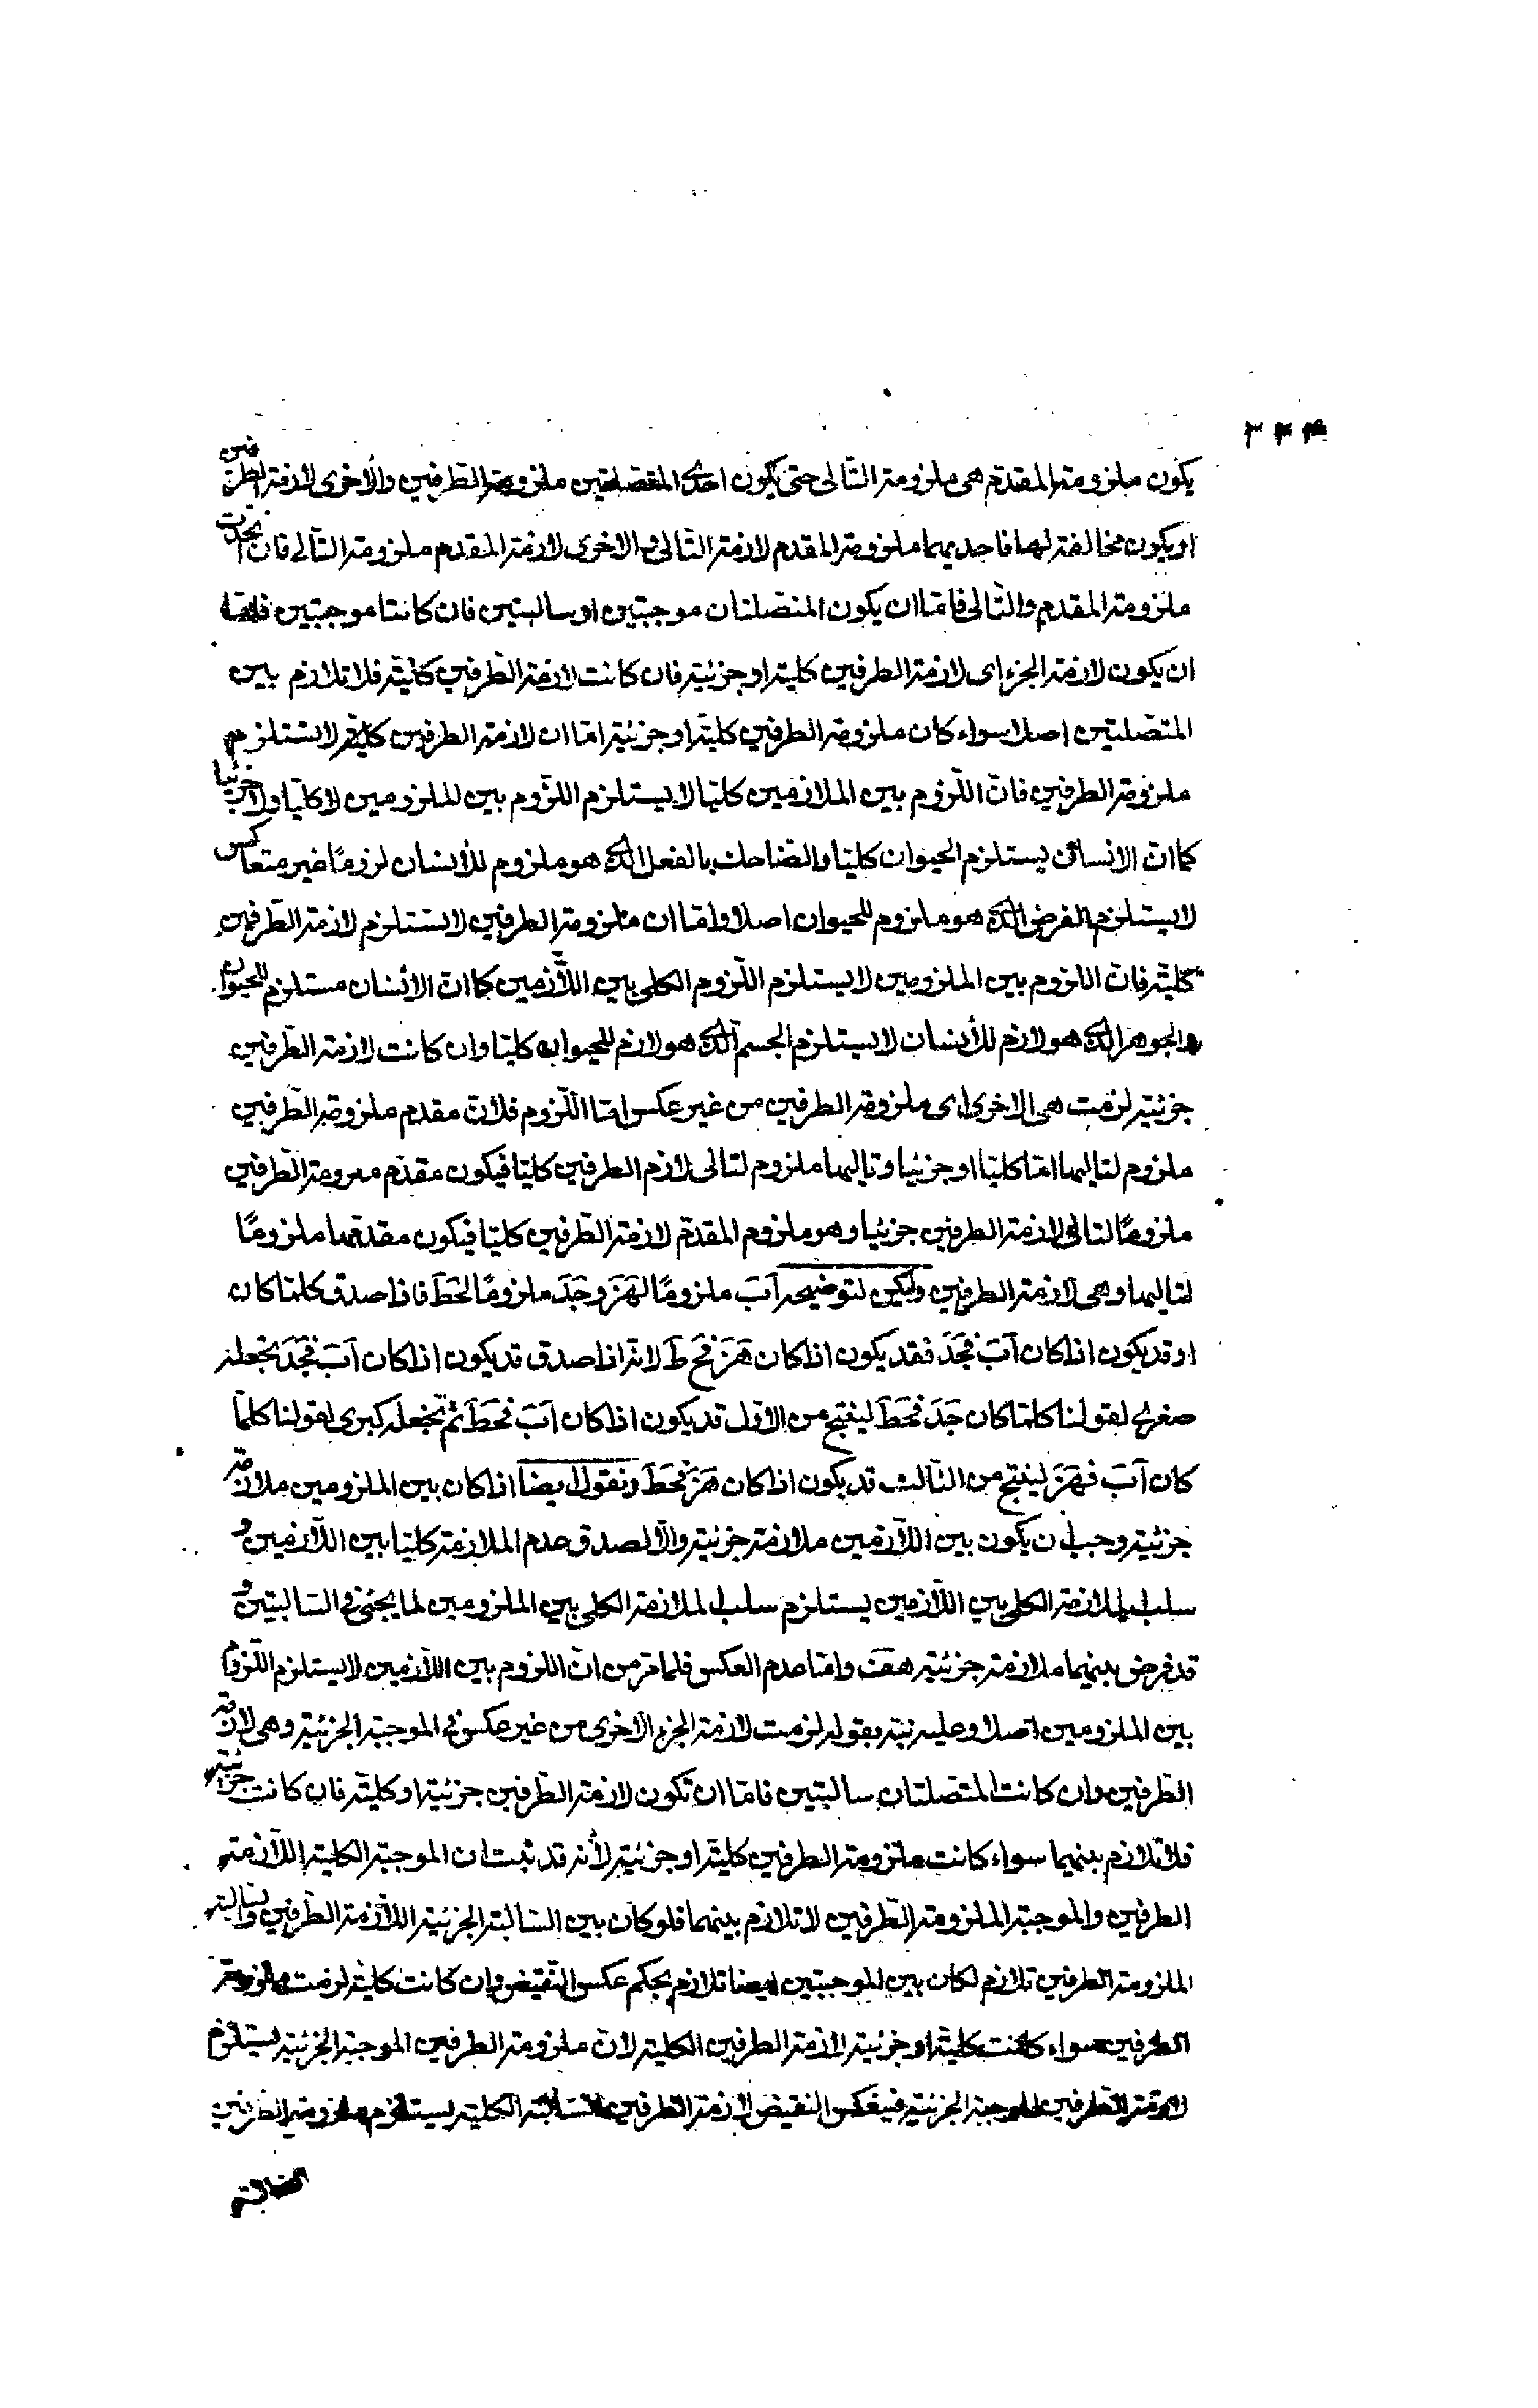 ٢٣٤
يكون ملزومة المقدم هى ملزومة التالى حتى يكون احدى المتصلتين ملزومة الطرفين والأخرى لازمة الطرفين
او يكون مخالفة لها فاحديهما ملزومة المقدم لازمة التالى والاخرى لازمة المقدم ملزومة التالى فان اتحدت
ملزومة المقدم والتالى فاما ان يكون المتصلتان موجبتين او سالبتين فان كانتا موجبتين فاما
ان يكون لازمة الجزء اى لازمة الطرفين كلية او جزئية فان كانت لازمة الطرفين كلية فلا تلازم بين
المتصلتين اصلا سواء كان ملزومة الطرفين كلية او جزئية اما ان لازمة الطرفين كلية لا تستلزم
ملزومة الطرفين فان اللزوم بين الملازمين كليا لا يستلزم اللزوم بين الملزومين لا كليا ولا جزئيا
كما ان الانسان يستلزم الحيوان كليا والضاحك بالفعل الذى هو ملزوم للأنسان لزومًا غير متعاكس
لا يستلزم الفرض الذى هو ملزوم للحيوان اصلا واما ان ملزومة الطرفين لا تستلزم لازمة الطرفين
كلية فان اللزوم بين الملزومين لا يستلزم اللزوم الكلى بين اللازمين كما ان الأنسان مستلزم للحيوان
والجوهر الذى هو لازم للأنسان لا يستلزم الجسم الذى هو لازم للحيوان كليا وان كانت لازمة الطرفين
جزئية لزمت هى الاخرى اى ملزومة الطرفين من غير عكس اما اللزوم فلأن مقدم ملزومة الطرفين
ملزوم لتاليها اما كليا او جزئيا وتاليها ملزوم لتالى لازم الطرفين كليا فيكون مقدم ملزومة الطرفين
ملزومًا لتالى لازمة الطرفين جزئيا وهو ملزوم المقدم لازمة الطرفين كليا فيكون مقدمها ملزومًا
لتاليها وهى لازمة الطرفين وليكن لتوضيحه آب ملزومًا لهز وجد ملزومًا لحط فاذا صدق كلما كان
او قد يكون اذا كان آب فجد فقد يكون اذا كان هز فح ط لانه اذا صدق قد يكون اذا كان آب فجد نجعله
صغرى لقولنا كلما كان جد فحط لينتج من الاول قد يكون اذا كان آب فحط ثم نجعله كبرى لقولنا كلما
كان آب فهز لينتج من الثالث قد يكون اذا كان هز فحط ونقول ايضا اذا كان بين الملزومين ملازمة
جزئية وجب ان يكون بين اللازمين ملازمة جزئية والا لصدق عدم الملازمة كليا بين اللازمين و
سلب الملازمة الكلى بين اللازمين يستلزم سلب الملازمة الكلى بين الملزومين لما يجئ فى السالبتين و
قد فرض بينهما ملازمة جزئية هف واما عدم العكس فلما مر من ان اللزوم بين اللازمين لا يستلزم اللزوم
بين الملزومين اصلا وعليه نبه بقوله لزمت لازمة الجزء الاخرى من غير عكس فى الموجبة الجزئية وهى لازمة
الطرفين وان كانت المتصلتان سالبتين فاما ان تكون لازمة الطرفين جزئية او كلية فان كانت جزئية
فلا تلازم بينهما سواء كانت ملزومة الطرفين كلية او جزئية لأنه قد ثبت ان الموجبة الكلية اللازمة
الطرفين والموجبة الملزومة الطرفين لا تلازم بينهما فلو كان بين السالبة الجزئية اللازمة الطرفين والسالبة
الملزومة الطرفين تلازم لكان بين الموجبتين ايضا تلازم بحكم عكس النقيض وان كانت كلية لزمت ملزومة
الطرفين سواء كانت كلية او جزئية لازمة الطرفين الكلية لان ملزومة الطرفين الموجبة الجزئية يستلزم
لازمة الطرفين الموجبة الجزئية فبعكس النقيض لازمة الطرفين السالبة الكلية يستلزم ملزومة الطرفين
السالبة